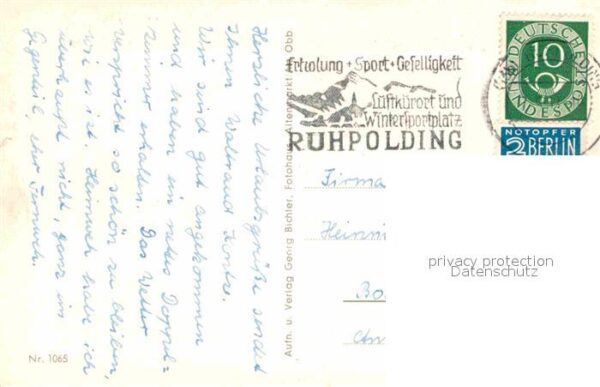 Herzliche Urlaubsgrüße sendet
Ihnen Waltraud
Wir sind gut angekommen
und haben ein nettes Doppel=
zimmer erhalten. Das Wetter
verspricht so schön zu bleiben,
wie es ist. Heimweh habe ich
überhaupt nicht, ganz im
Gegenteil, eher Fernweh.
Nr. 1065
Aufn. u. Verlag Georg Bichler, Fotohaus, Altenmarkt Alz Obb
Erholung + Sport + Geselligkeit
Luftkurort und
Wintersportplatz
RUHPOLDING
DEUTSCHE
10
BUNDESPOST
NOTOPFER
2 BERLIN
Firma
privacy protection
Datenschutz